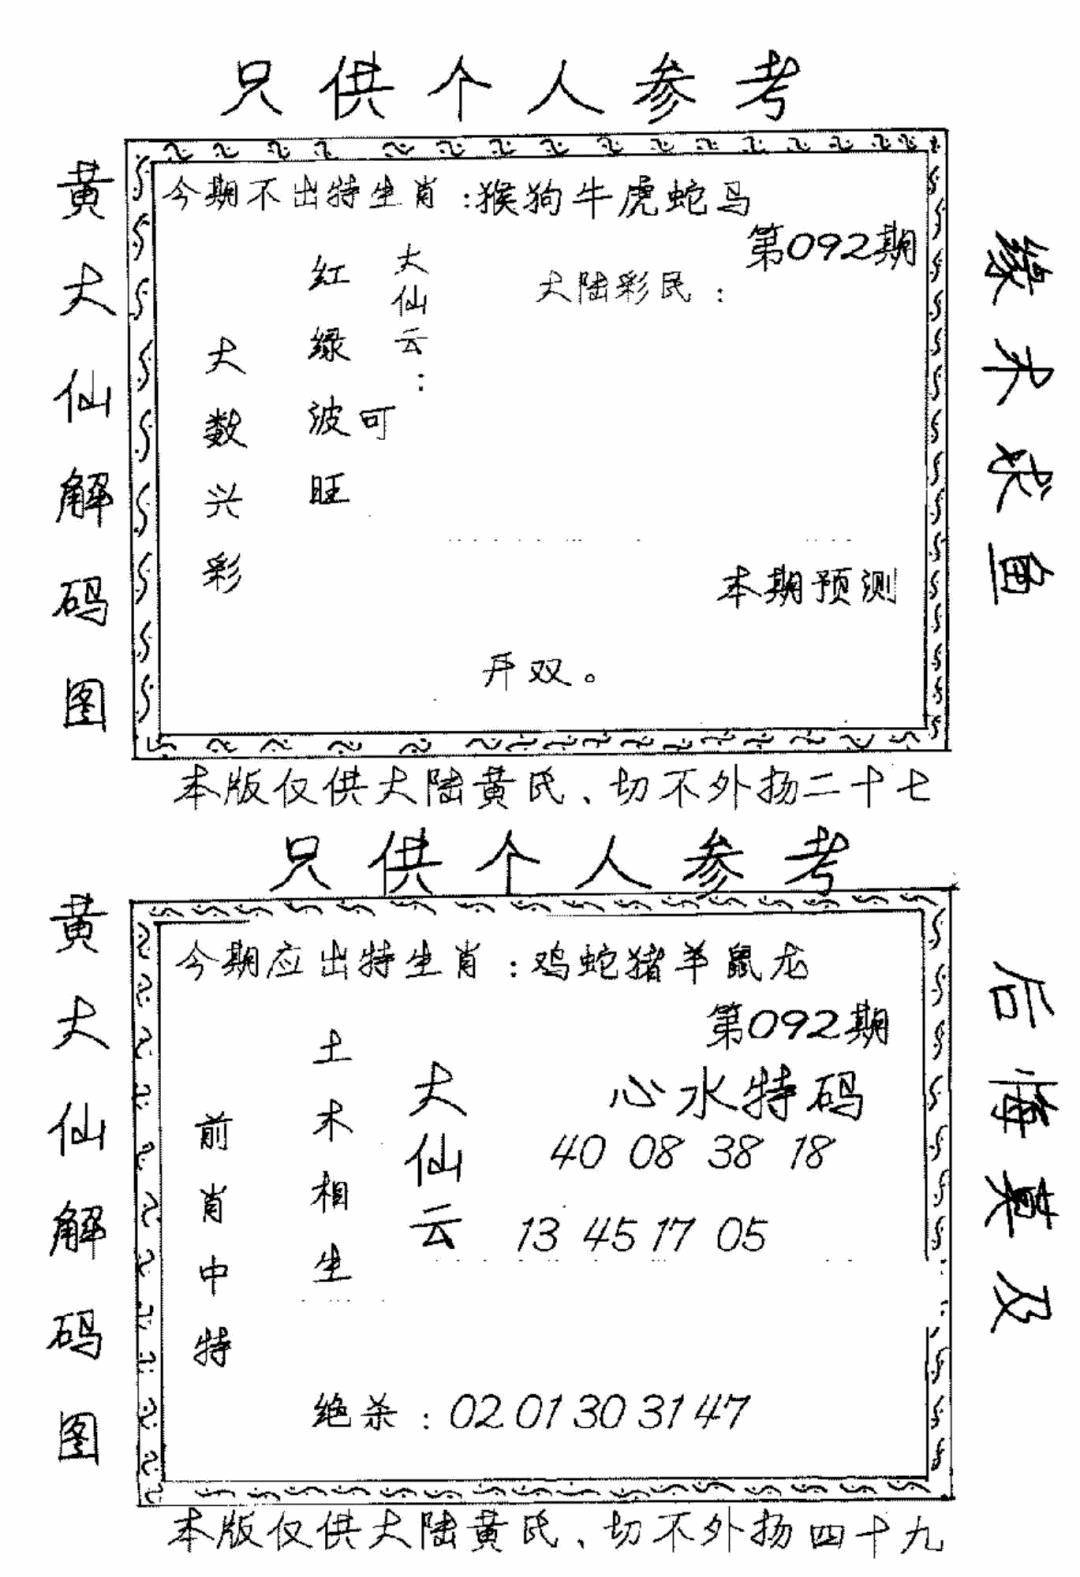 只供个人参考
黄大仙解码图
今期不出特生肖：猴狗牛虎蛇马
第092期
大陆彩民：
大仙云：
红绿波可旺
大数兴彩
本期预测
开双。
缘木求鱼
本版仅供大陆黄氏、切不外扬二十七
只供个人参考
黄大仙解码图
今期应出特生肖：鸡蛇猪羊鼠龙
第092期
心水特码
40 08 38 18
13 45 17 05
大仙云
土木相生
前肖中特
绝杀：02 01 30 31 47
后悔莫及
本版仅供大陆黄氏、切不外扬四十九